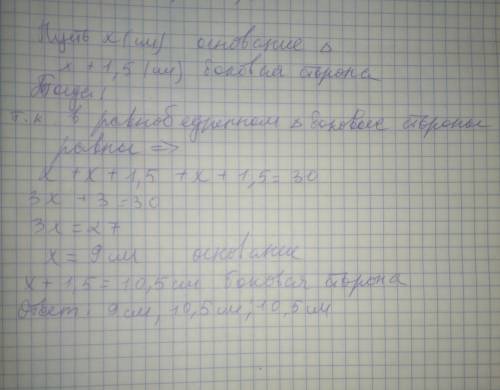 Пусть x (см) основание Δ
x + 1,5 (см) боковая сторона
Тогда:
т.к. в равнобедренном Δ боковые стороны
равны =>
x + x + 1,5 + x + 1,5 = 30
3x + 3 = 30
3x = 27
x = 9 см основание
x + 1,5 = 10,5 см боковая сторона
Ответ: 9 см, 10,5 см, 10,5 см